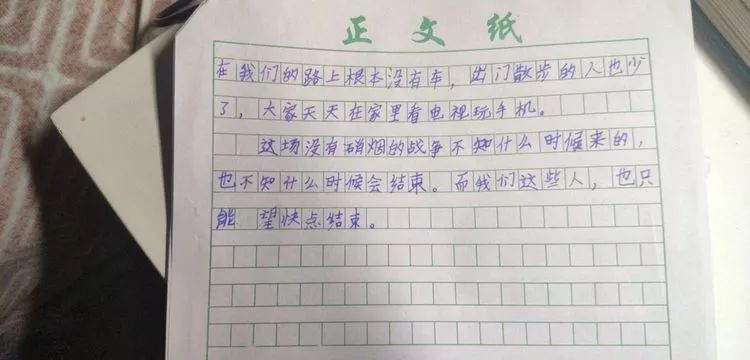 正文纸
在我们的路上根本没有车，出门散步的人也少
了，大家天天在家里看电视玩手机。
这场没有硝烟的战争不知什么时候来的，
也不知什么时候会结束。而我们这些人，也只
能 望快点结束。